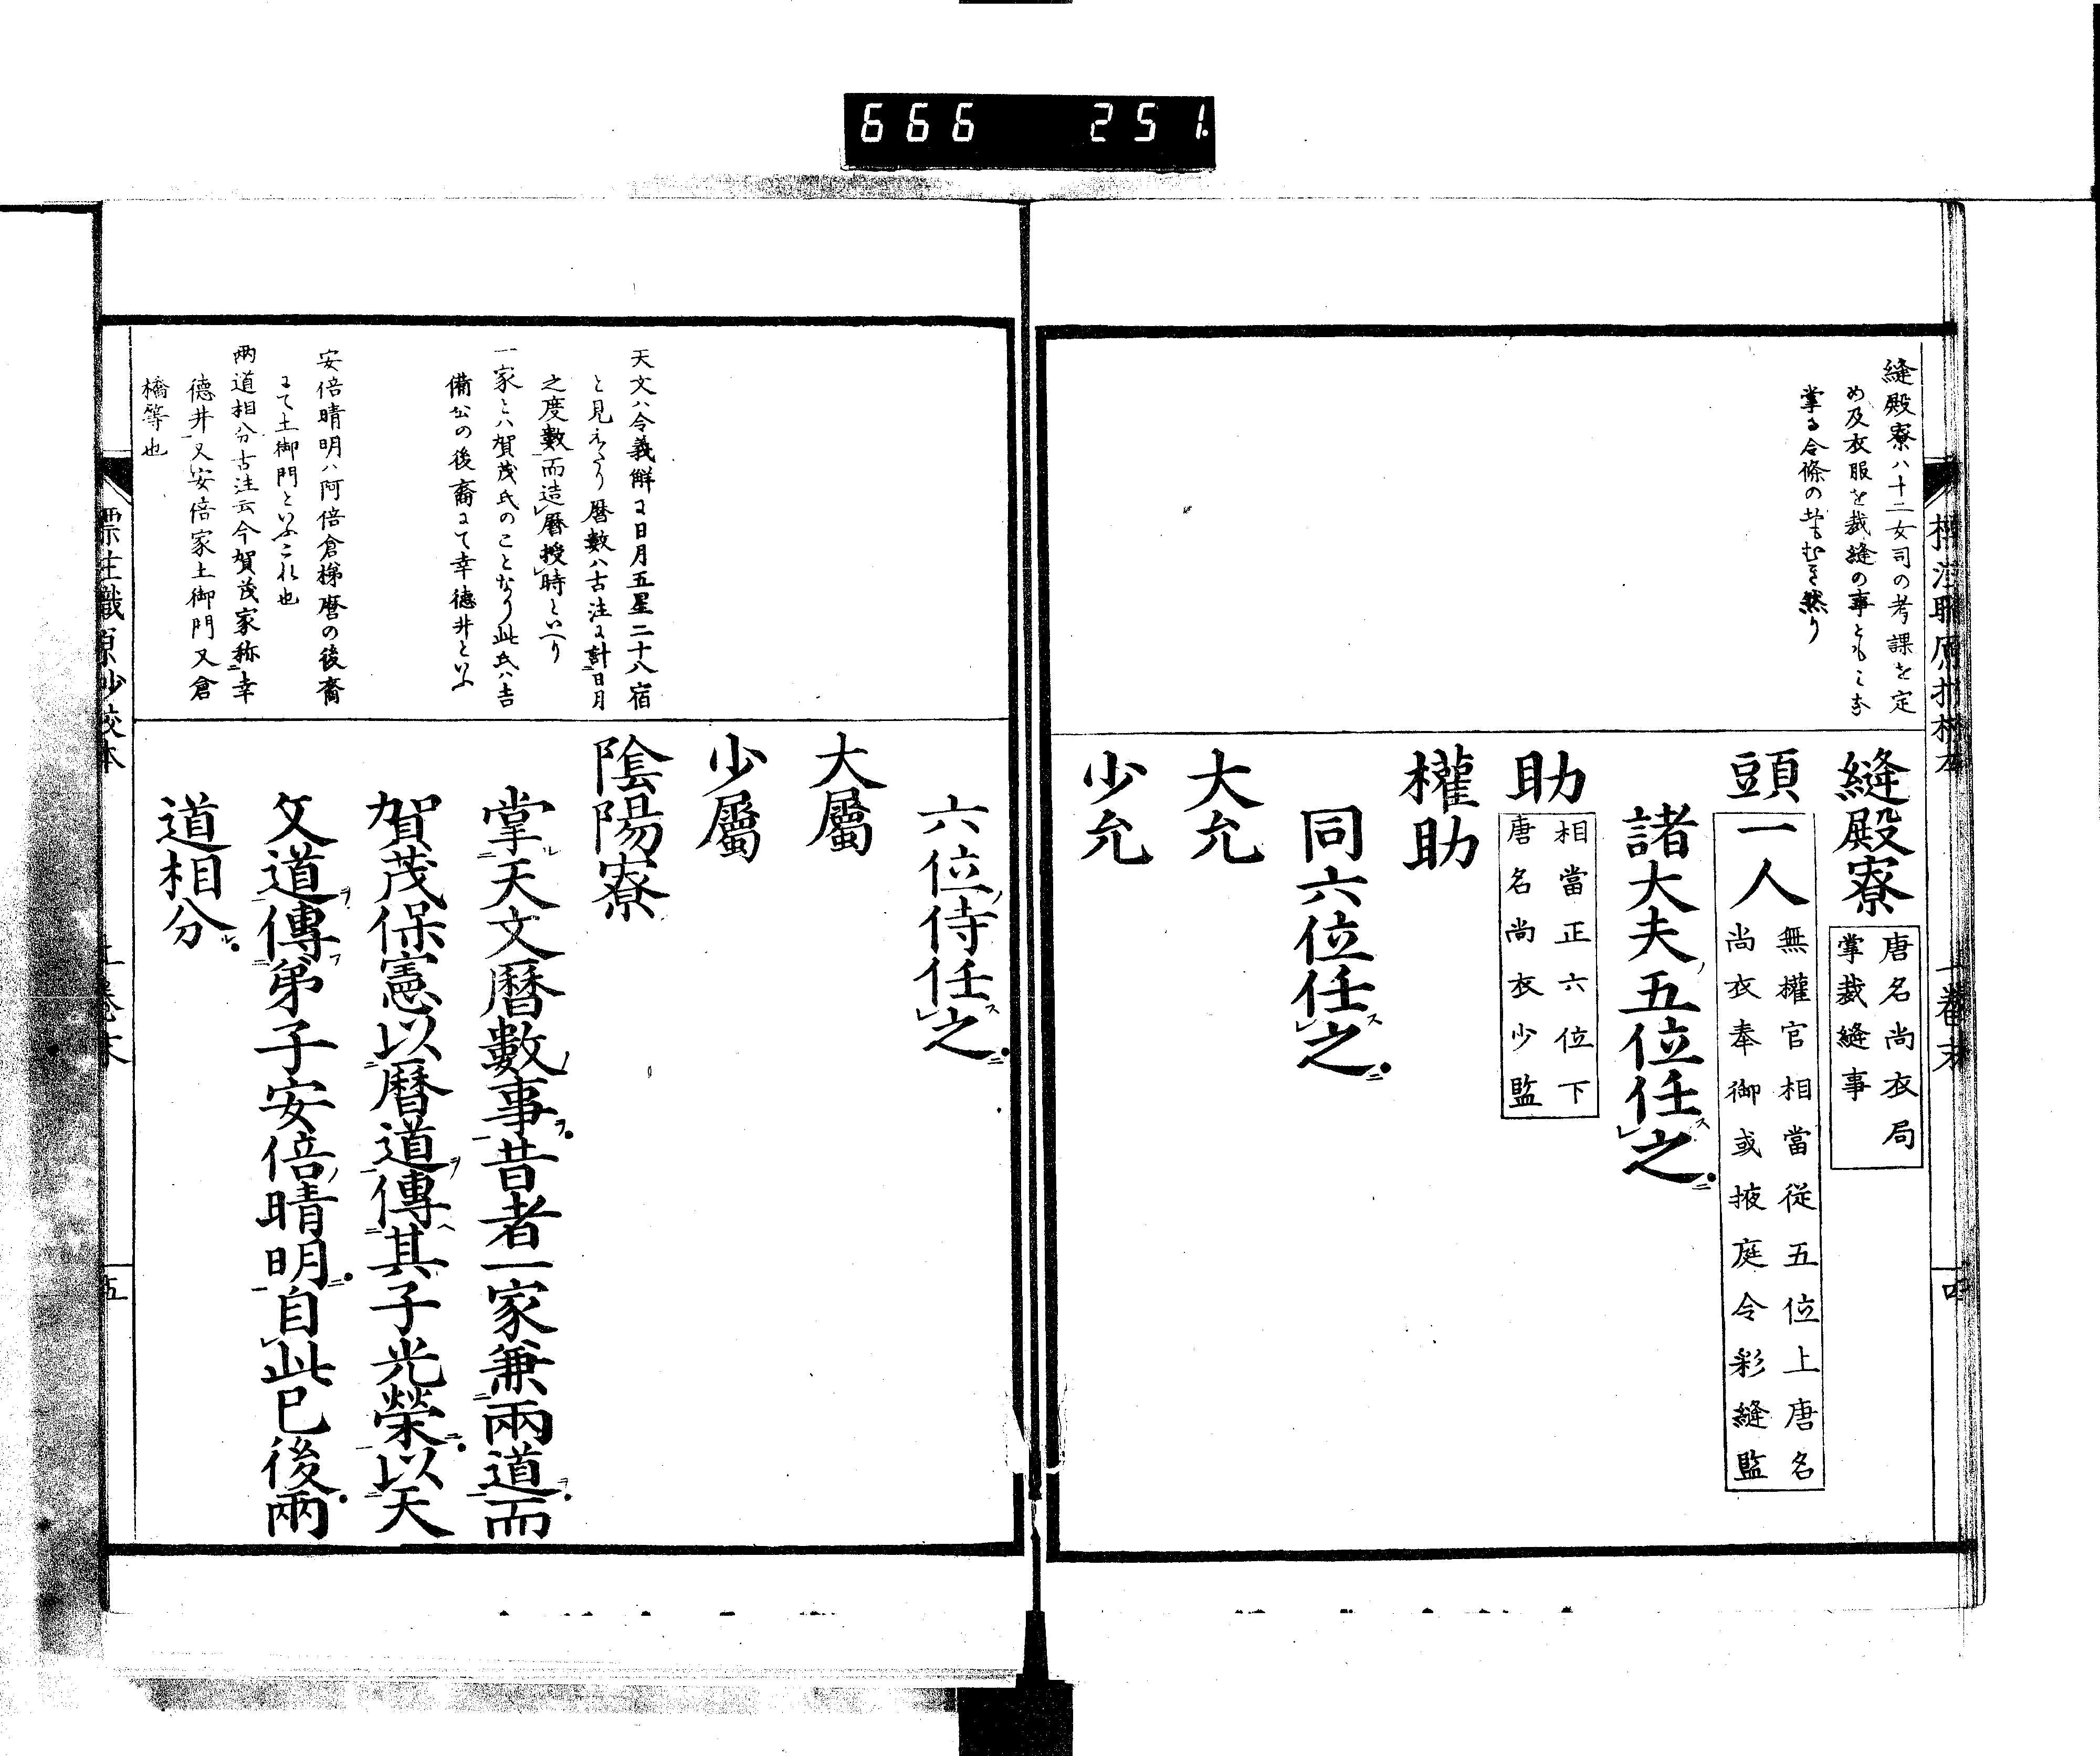 666 251
縫殿寮ハ十二女司の考課を定
め及衣服を裁縫の事ともに
掌る令條のおもむき然り
縫殿寮
唐名尚衣局
掌裁縫事
頭一人
無權官相當従五位上唐名
尚衣奉御或掖庭令彩縫監
諸大夫ノ五位任スレ之ニ
助
相當正六位下
唐名尚衣少監
權助
同六位任スレ之ニ
大允
少允
天文ハ令義解に日月五星二十八宿
と見えたり暦數ハ古注に計二日月
之度數一而造レ暦授レ時といへり
一家とハ賀茂氏のことなり此氏ハ吉
備公の後裔にて幸德井といふ
安倍晴明ハ阿倍倉梯麿の後裔
にて土御門といふこれ也
兩道相分古注云今賀茂家称二幸
德井一又安倍家土御門又倉
橋等也
六位ノ侍任スレ之ニ
大屬
少屬
陰陽寮
掌ル二天文暦數ノ事ヲ一昔者一家兼二兩道ヲ一而
賀茂保憲以二暦道ヲ一傳ヘ二其子光榮ニ一以二天
文道ヲ一傳フ二弟子安倍ノ晴明ニ一自レ此已後兩
道相分ル
標注職原抄校本
上卷末
五